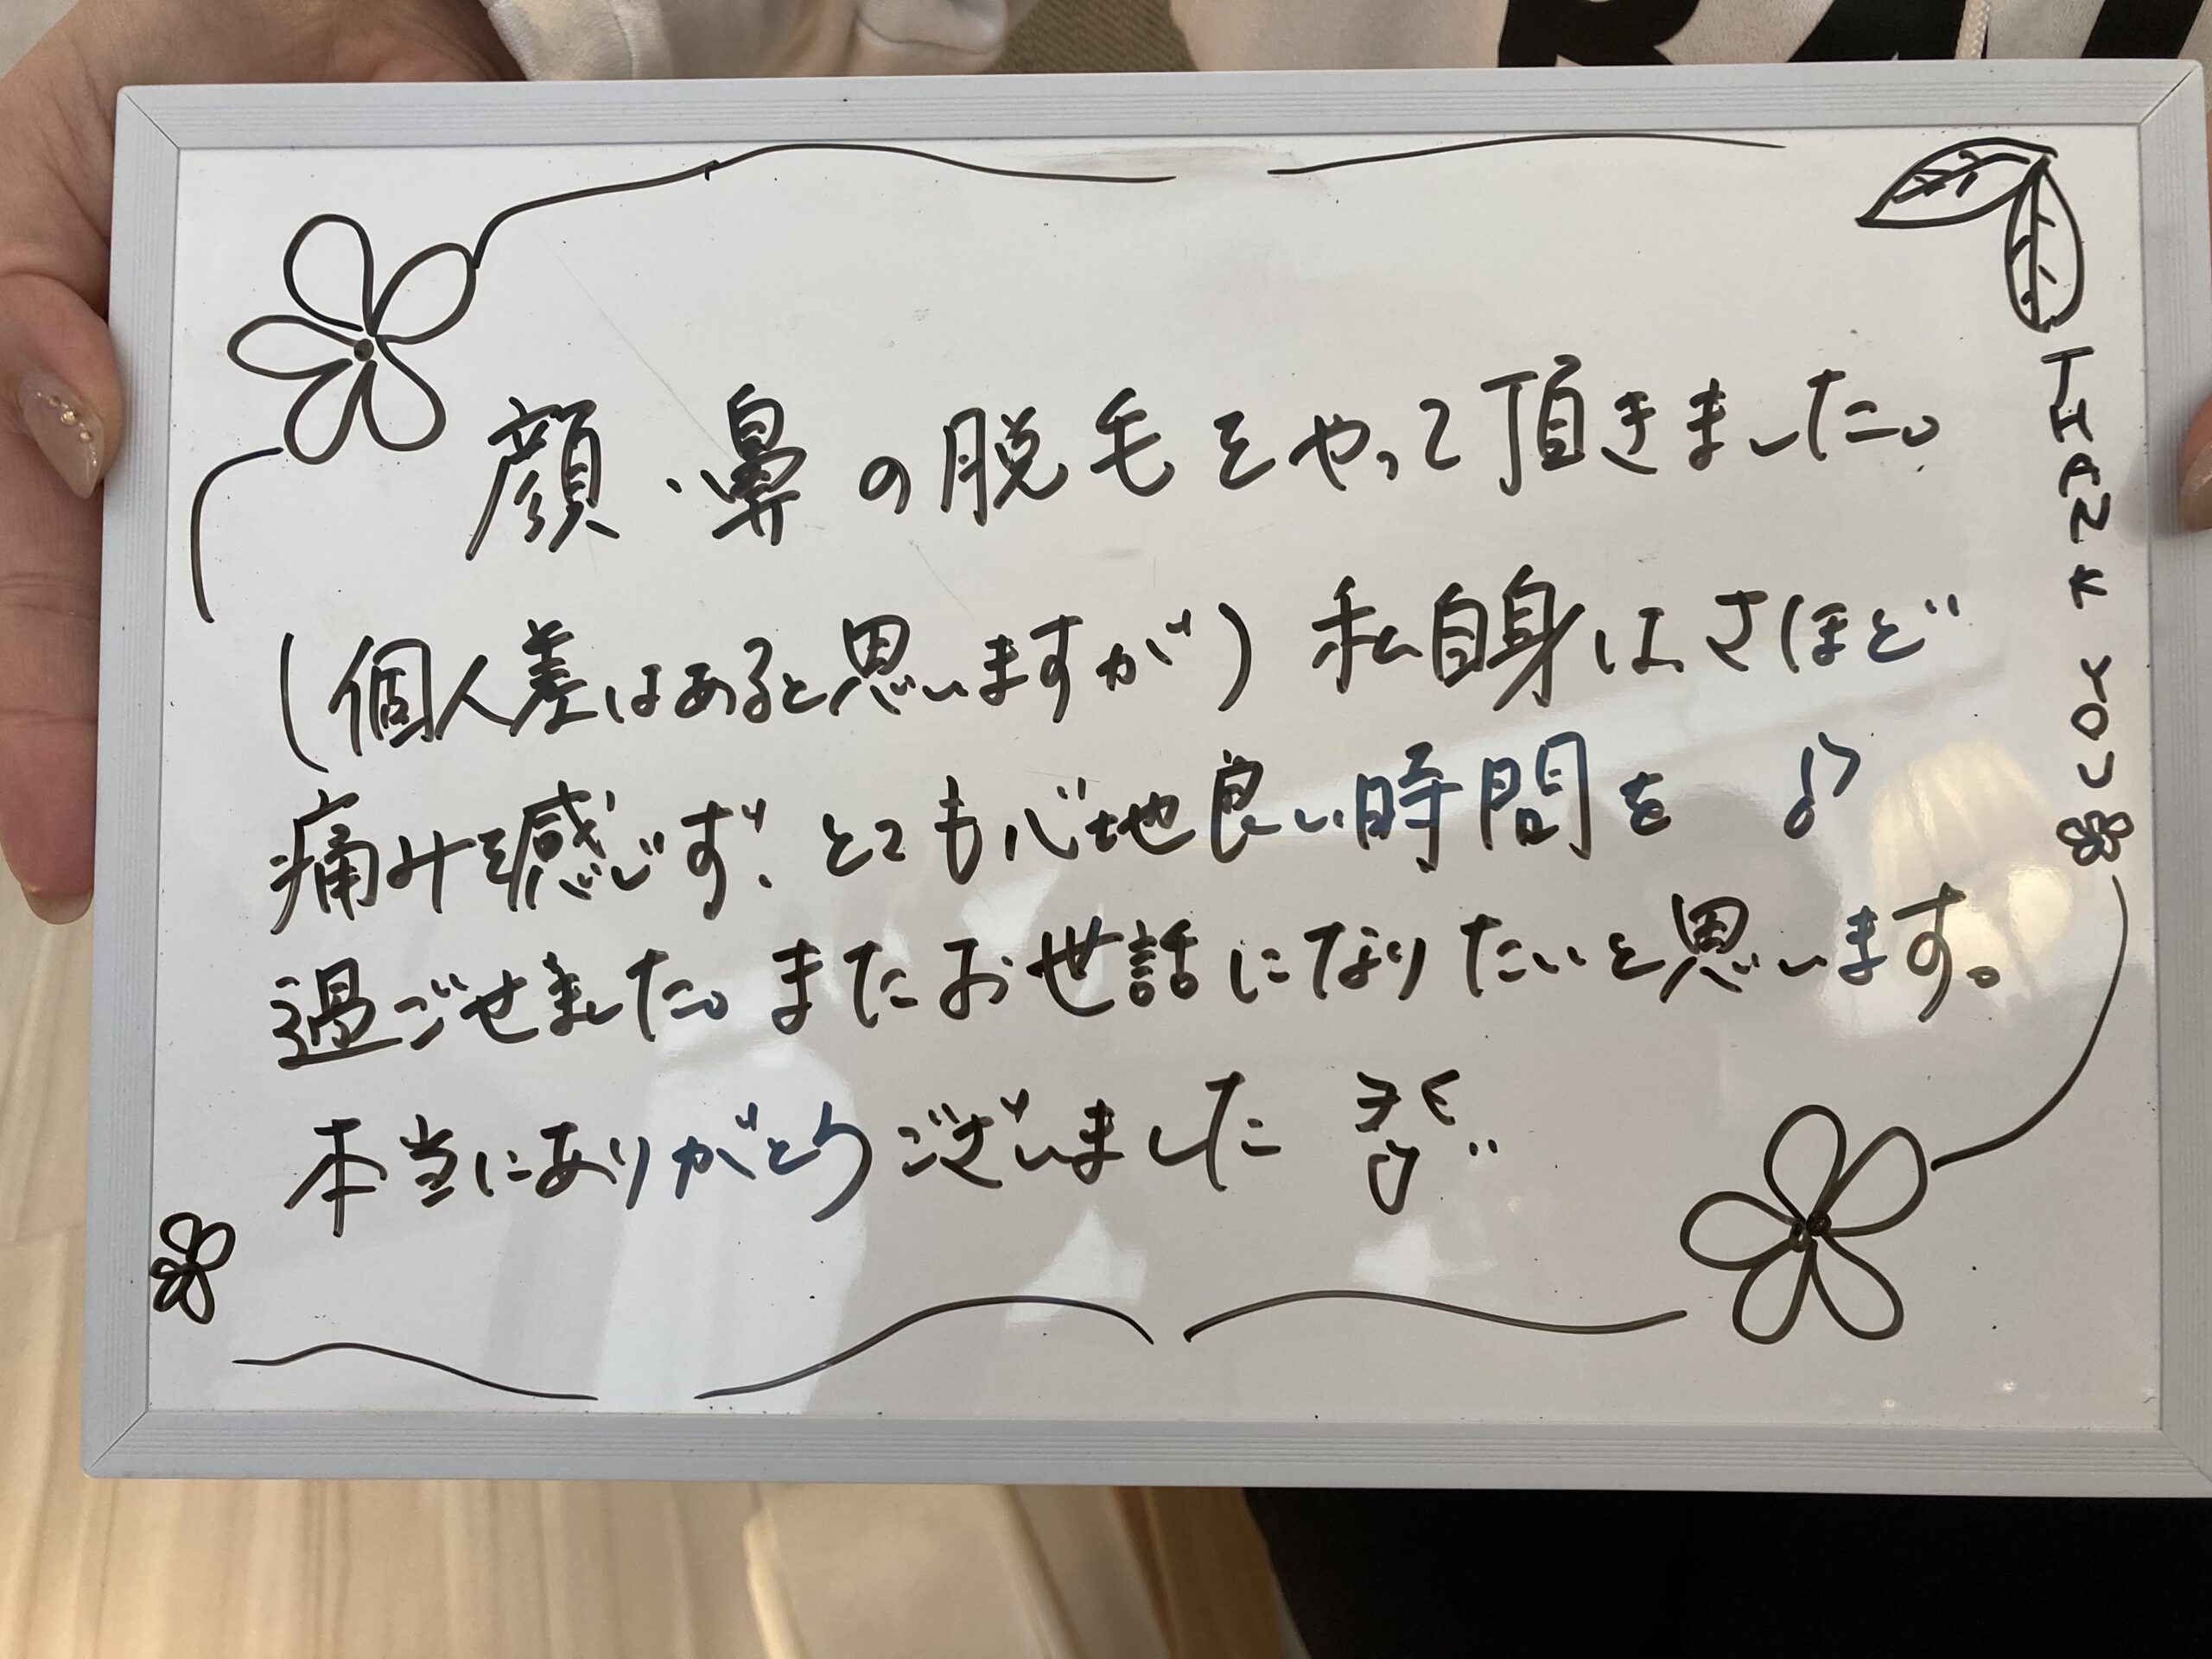 顔・鼻の脱毛をやって頂きました。
(個人差はあると思いますが) 私自身はさほど
痛みを感じず、とても心地良い時間を♪
過ごせました。またお世話になりたいと思います。
本当にありがとうございました
THANK YOU